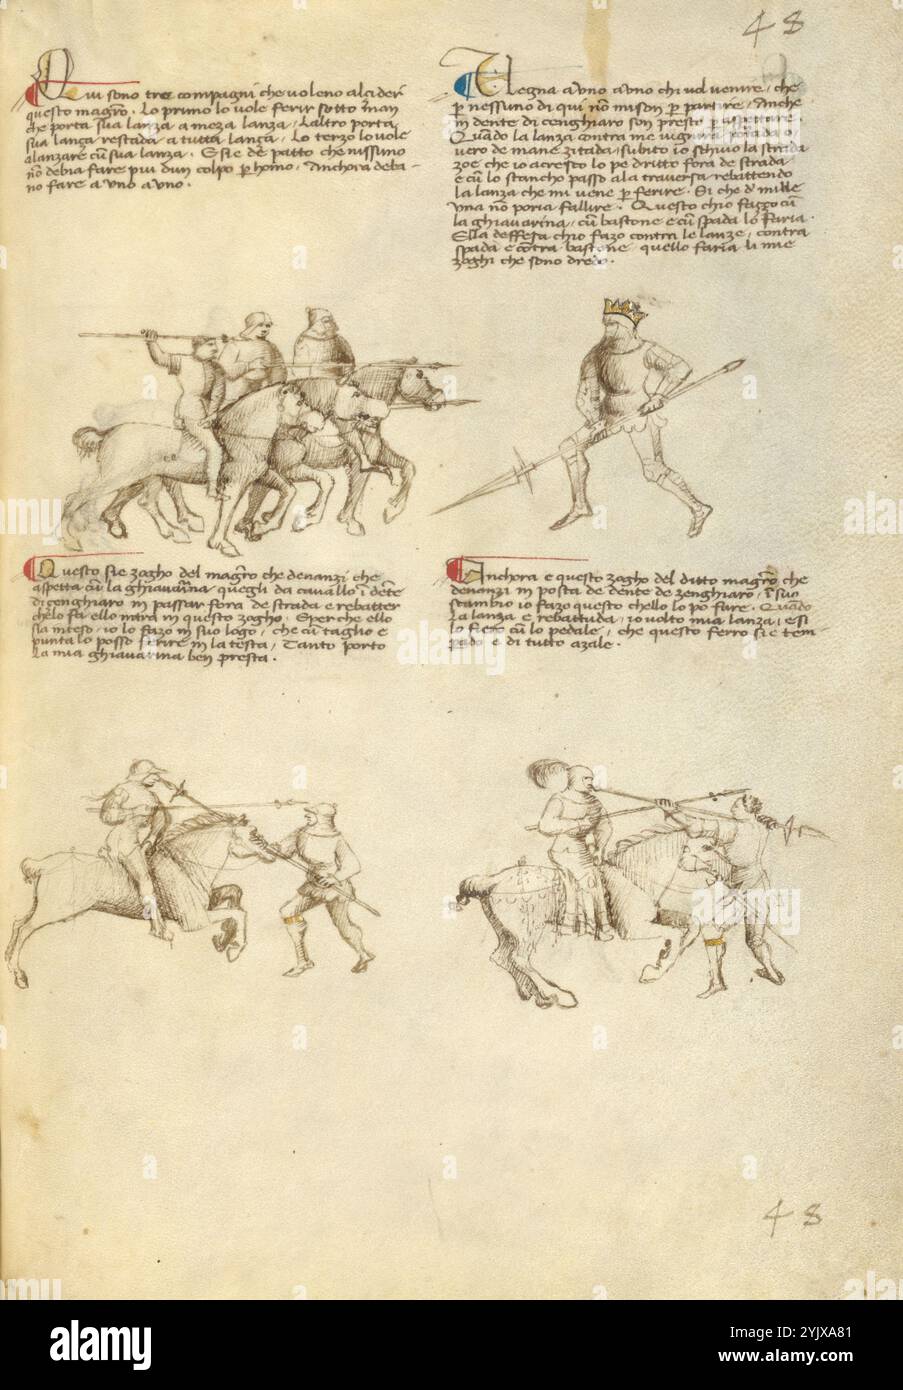 48
Qui sono tre compagni che voleno alcider
questo magro. Lo primo lo vole ferir sotto man
che porta sua lanza a meza lanza, Laltro porta
sua lanza restada a tutta lanza, Lo terzo lo vole
alanzare cum sua lanza. Esie de patto che nissuno
non debia fare piu dun colpo per homo. Anchora deba
no fare a uno a uno.
Vegna a uno a uno chi vol venire, che
per nessuno di qui non mison per partire, Anche
in dente di cenghiaro son presto per aspettare.
Quando la lanza contra me vignira portada o
vero de mane zitada, subito io schivo la strada
zoe che io acresco lo pe dritto fora de strada
e cum lo stancho passo ala traversa rebattendo
la lanza che mi vene per ferire. Si che de mille
una non poria fallire. Questo chio fazzo cum
la ghiavarina, cum bastone e cum spada lo faria.
Ella deffesa chio fazo contra le lanze, contra
spada e contra bastone quello faria li mie
zoghi che sono dredo.
Questo sie zogho del magro che denanzi che
aspetta cum la ghiavarina quegli da cavallo in dente
di cenghiaro in passar fora de strada e rebatter
chelo fa ello intra in questo zogho. Esper che ello
sia inteso, io lo fazo in suo logo, che cum taglio e
punta lo posso ferire in la testa, Tanto porto
la mia ghiavarina ben presta.
Anchora e questo zogho del ditto magro che
denanzi in posta de dente de zenghiaro, in suo
scambio io fazo questo chello lo po fare. Quando
la lanza e rebattuda, io volto mia lanza, e si
lo fiero cum lo pedale, che questo ferro si e tem
perado e di tutto azale.
48
alamy
Image ID: 2YJXA81
www.alamy.com